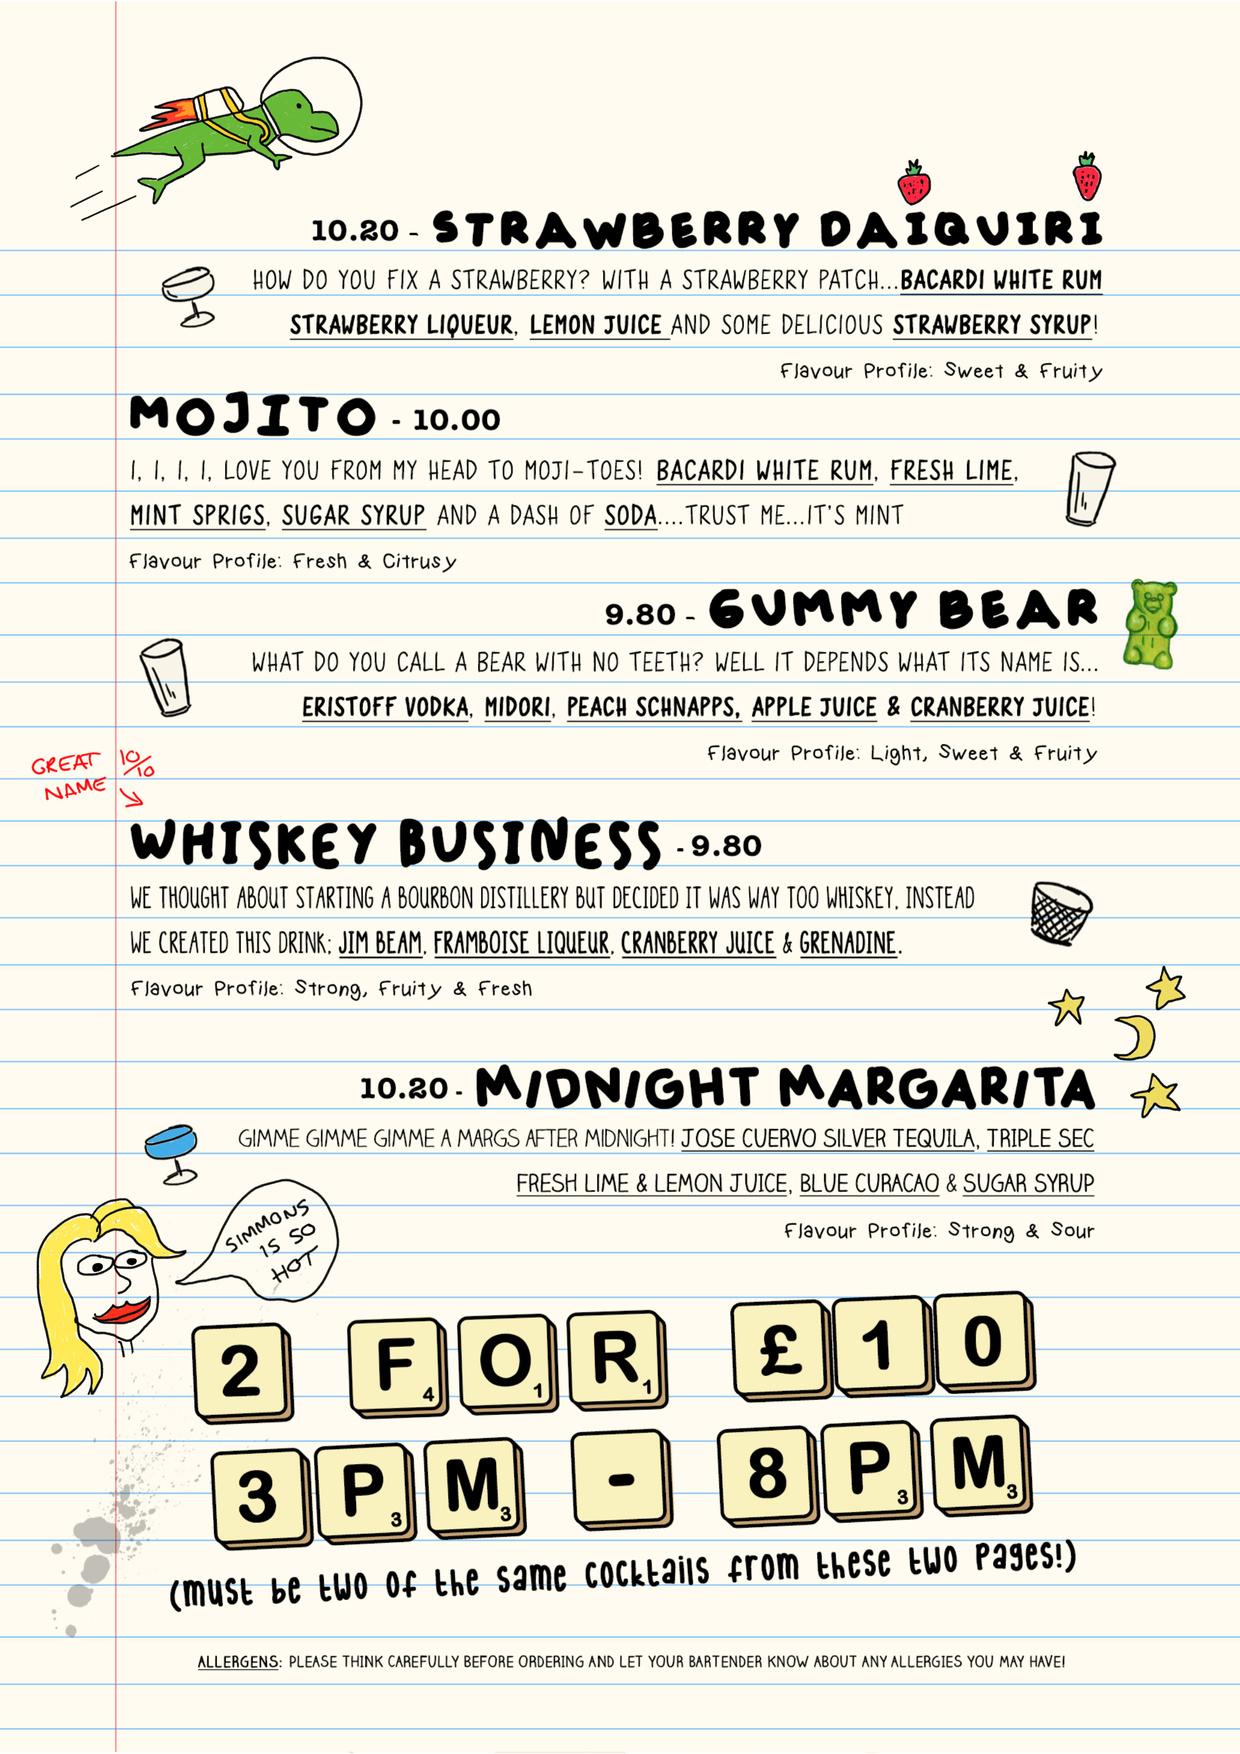 10.20 - STRAWBERRY DAIQUIRI
HOW DO YOU FIX A STRAWBERRY? WITH A STRAWBERRY PATCH...BACARDI WHITE RUM
STRAWBERRY LIQUEUR, LEMON JUICE AND SOME DELICIOUS STRAWBERRY SYRUP!
Flavour Profile: Sweet & Fruity
MOJITO - 10.00
I, I, I, I, LOVE YOU FROM MY HEAD TO MOJI-TOES! BACARDI WHITE RUM, FRESH LIME,
MINT SPRIGS, SUGAR SYRUP AND A DASH OF SODA....TRUST ME...IT'S MINT
Flavour Profile: Fresh & Citrusy
9.80 - GUMMY BEAR
WHAT DO YOU CALL A BEAR WITH NO TEETH? WELL IT DEPENDS WHAT ITS NAME IS...
ERISTOFF VODKA, MIDORI, PEACH SCHNAPPS, APPLE JUICE & CRANBERRY JUICE!
Flavour Profile: Light, Sweet & Fruity
GREAT 10/10
NAME
WHISKEY BUSINESS - 9.80
WE THOUGHT ABOUT STARTING A BOURBON DISTILLERY BUT DECIDED IT WAS WAY TOO WHISKEY, INSTEAD
WE CREATED THIS DRINK; JIM BEAM, FRAMBOISE LIQUEUR, CRANBERRY JUICE & GRENADINE.
Flavour Profile: Strong, Fruity & Fresh
10.20 - MIDNIGHT MARGARITA
GIMME GIMME GIMME A MARGS AFTER MIDNIGHT! JOSE CUERVO SILVER TEQUILA, TRIPLE SEC
FRESH LIME & LEMON JUICE, BLUE CURACAO & SUGAR SYRUP
Flavour Profile: Strong & Sour
SIMMONS
IS SO
HOT
2 F4 O1 R1 £10
3P3M3 - 8P3M3
(must be two of the same cocktails from these two pages!)
ALLERGENS: PLEASE THINK CAREFULLY BEFORE ORDERING AND LET YOUR BARTENDER KNOW ABOUT ANY ALLERGIES YOU MAY HAVE!